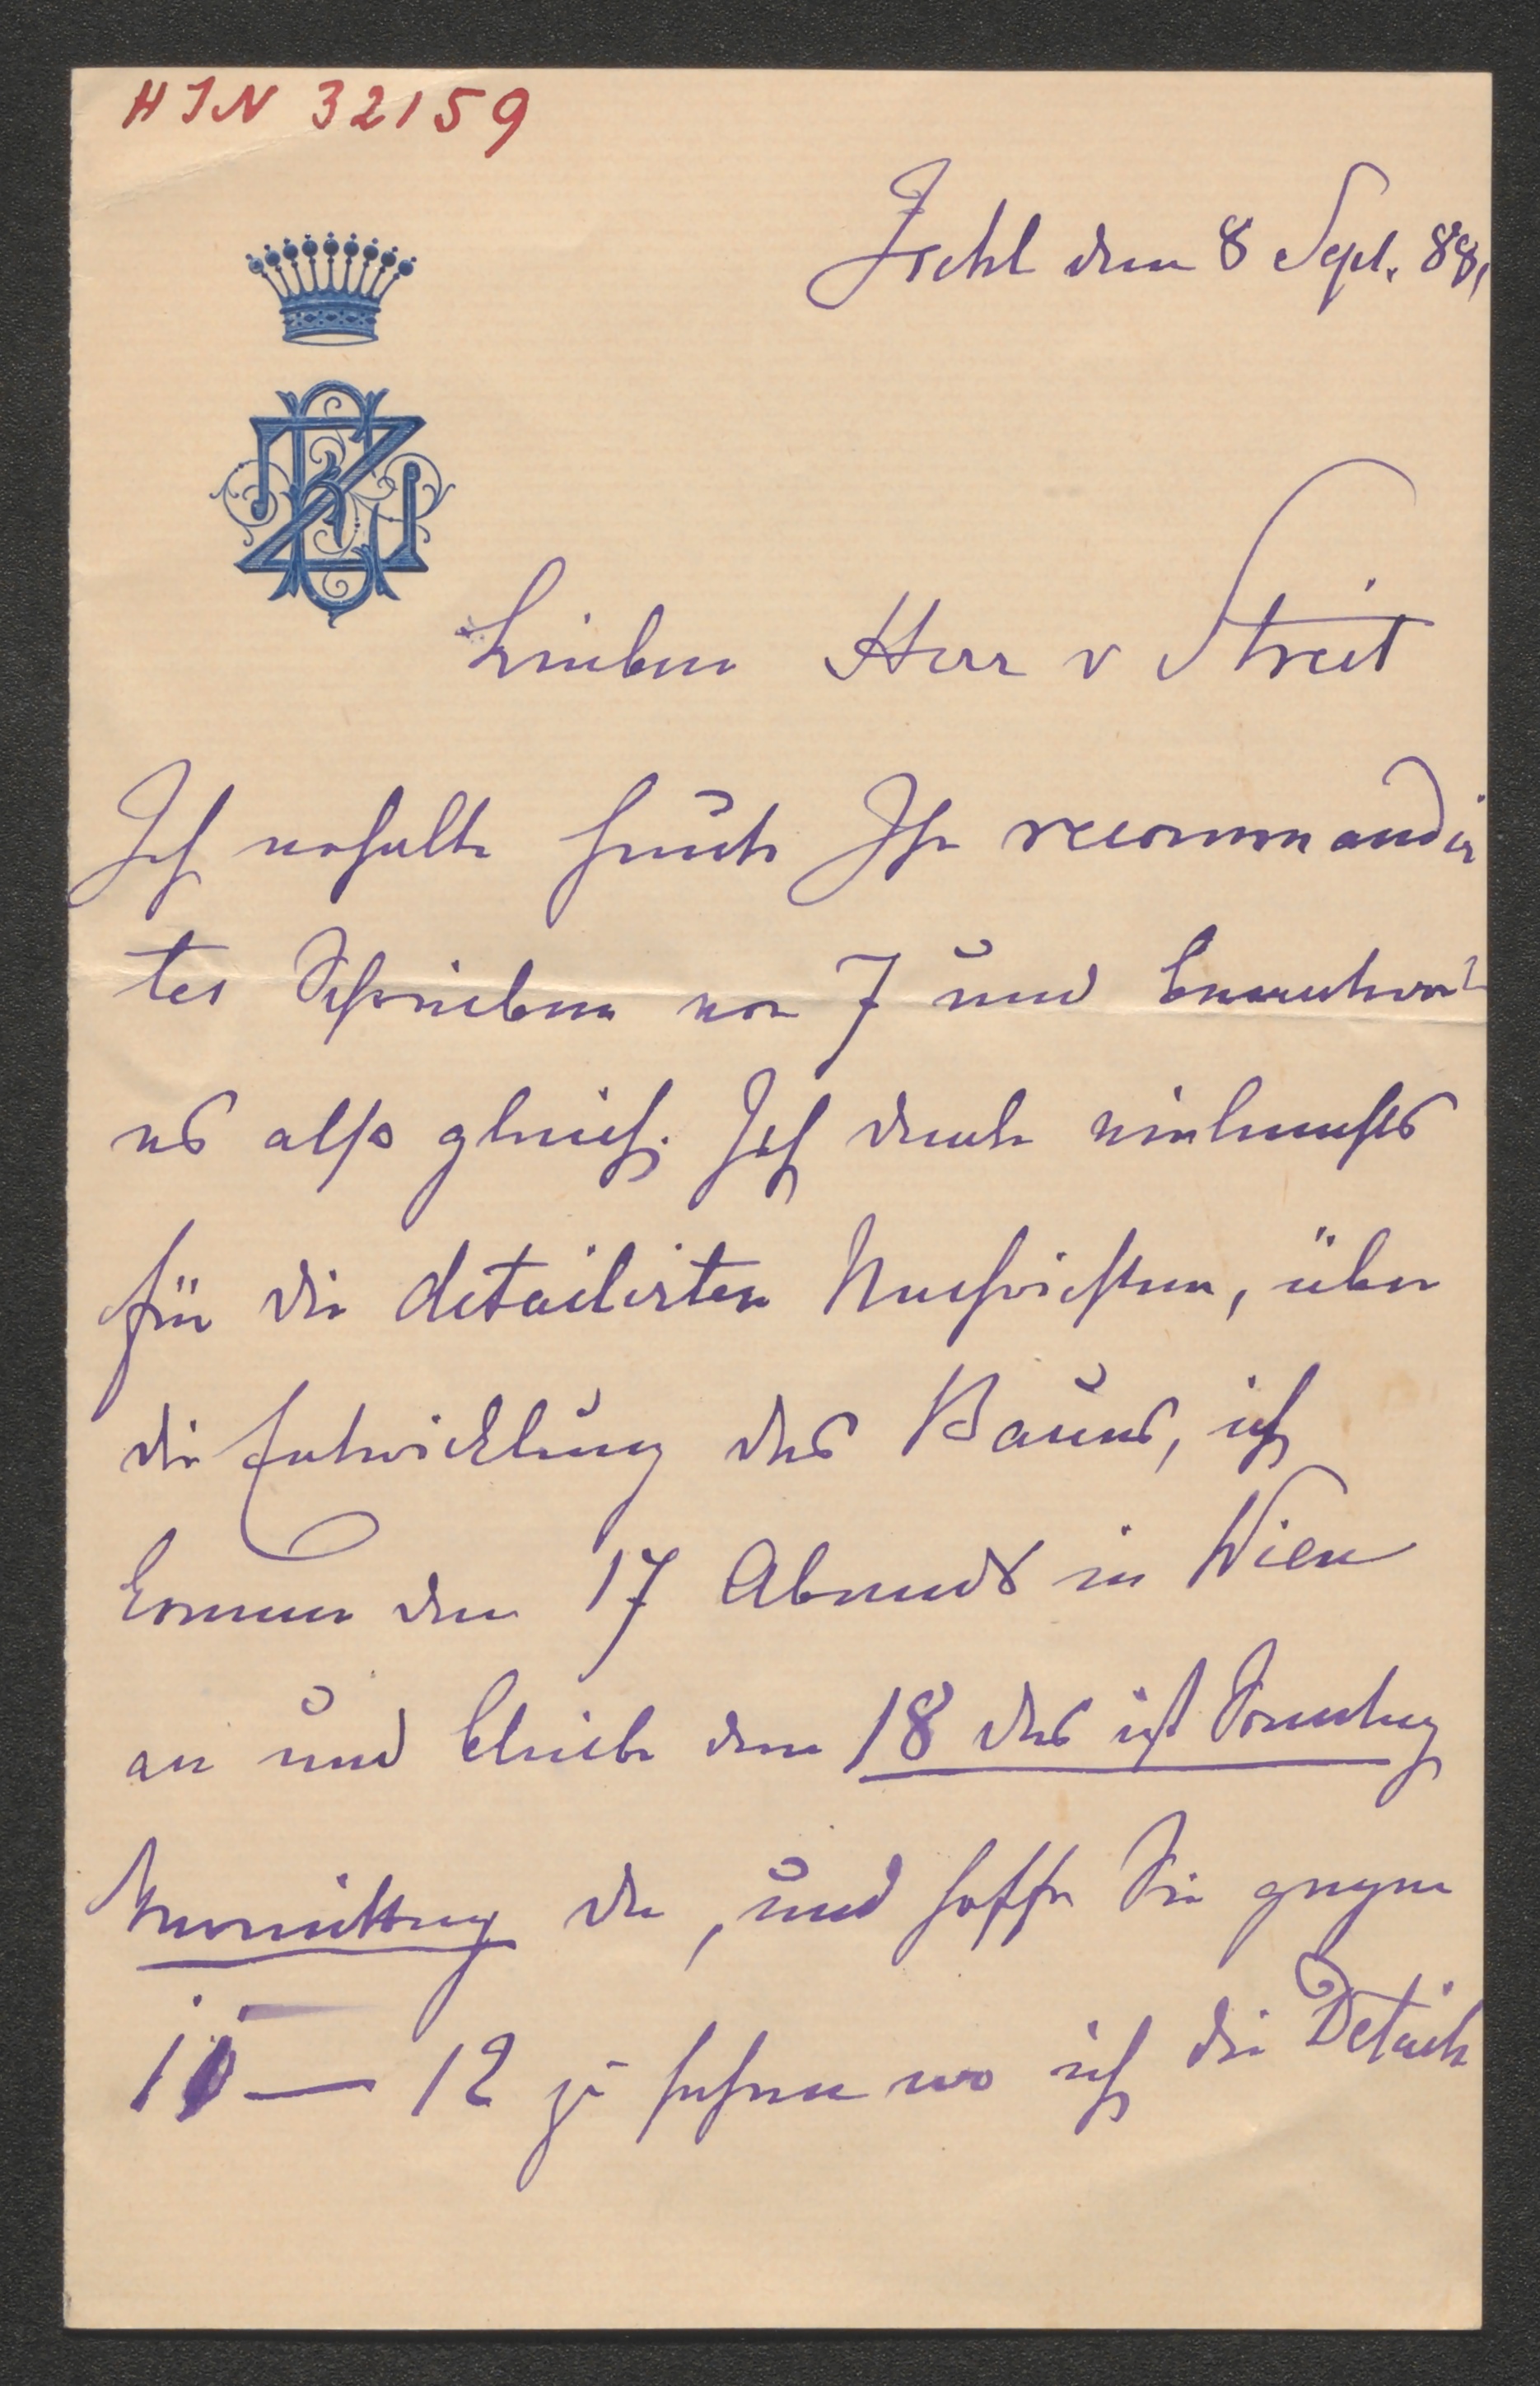 HIN 32159
Ischl den 8 Sept. 88,
Lieber Herr v Streit
Ich erhalte heute Ihr recommandir
tes Schreiben von 7 und beantwort
es also gleich. Ich danke vielmals
für die detailirten Nachrichten, über
die Entwicklung des Baues, ich
komme den 17 Abends in Wien
an und bleibe den 18 das ist Sonntag
Vormittag da, und hoffe Sie gegen
10 — 12 zu sehen wo ich die Details